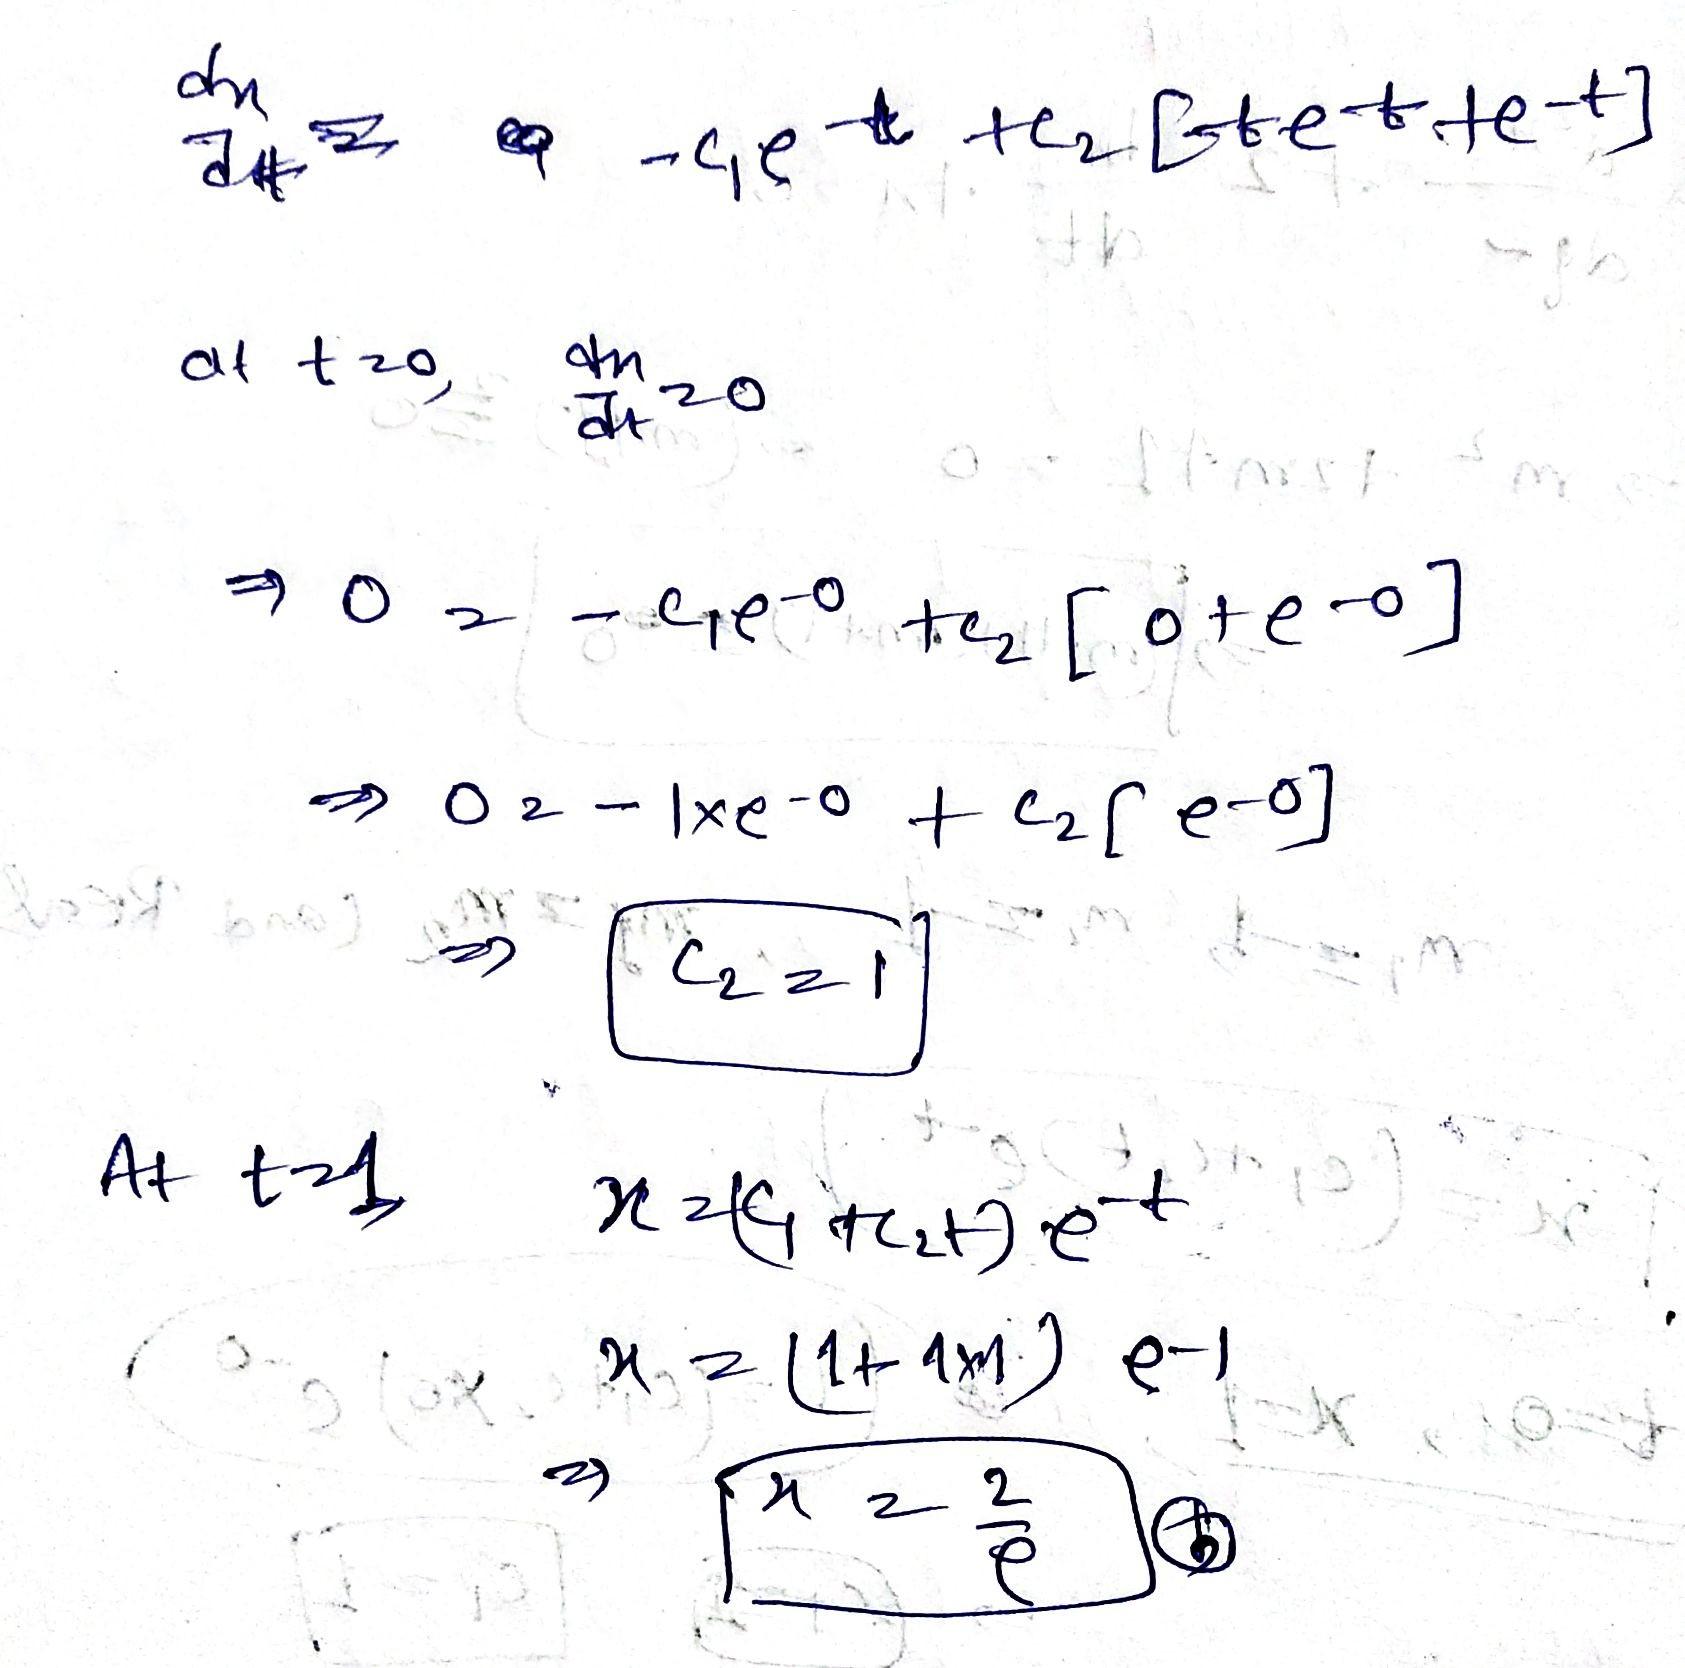 dx/dt = -c₁e^-t + c₂ [-te^-t + e^-t]
at t=0, dx/dt = 0
⇒ 0 = -c₁e^-0 + c₂ [0+e^-0]
⇒ 0 = -1×e^-0 + c₂[e^-0]
⇒ c₂ = 1
At t=1, x = (c₁+c₂t) e^-t
x = (1+1×1) e^-1
⇒ x = 2/e (b)